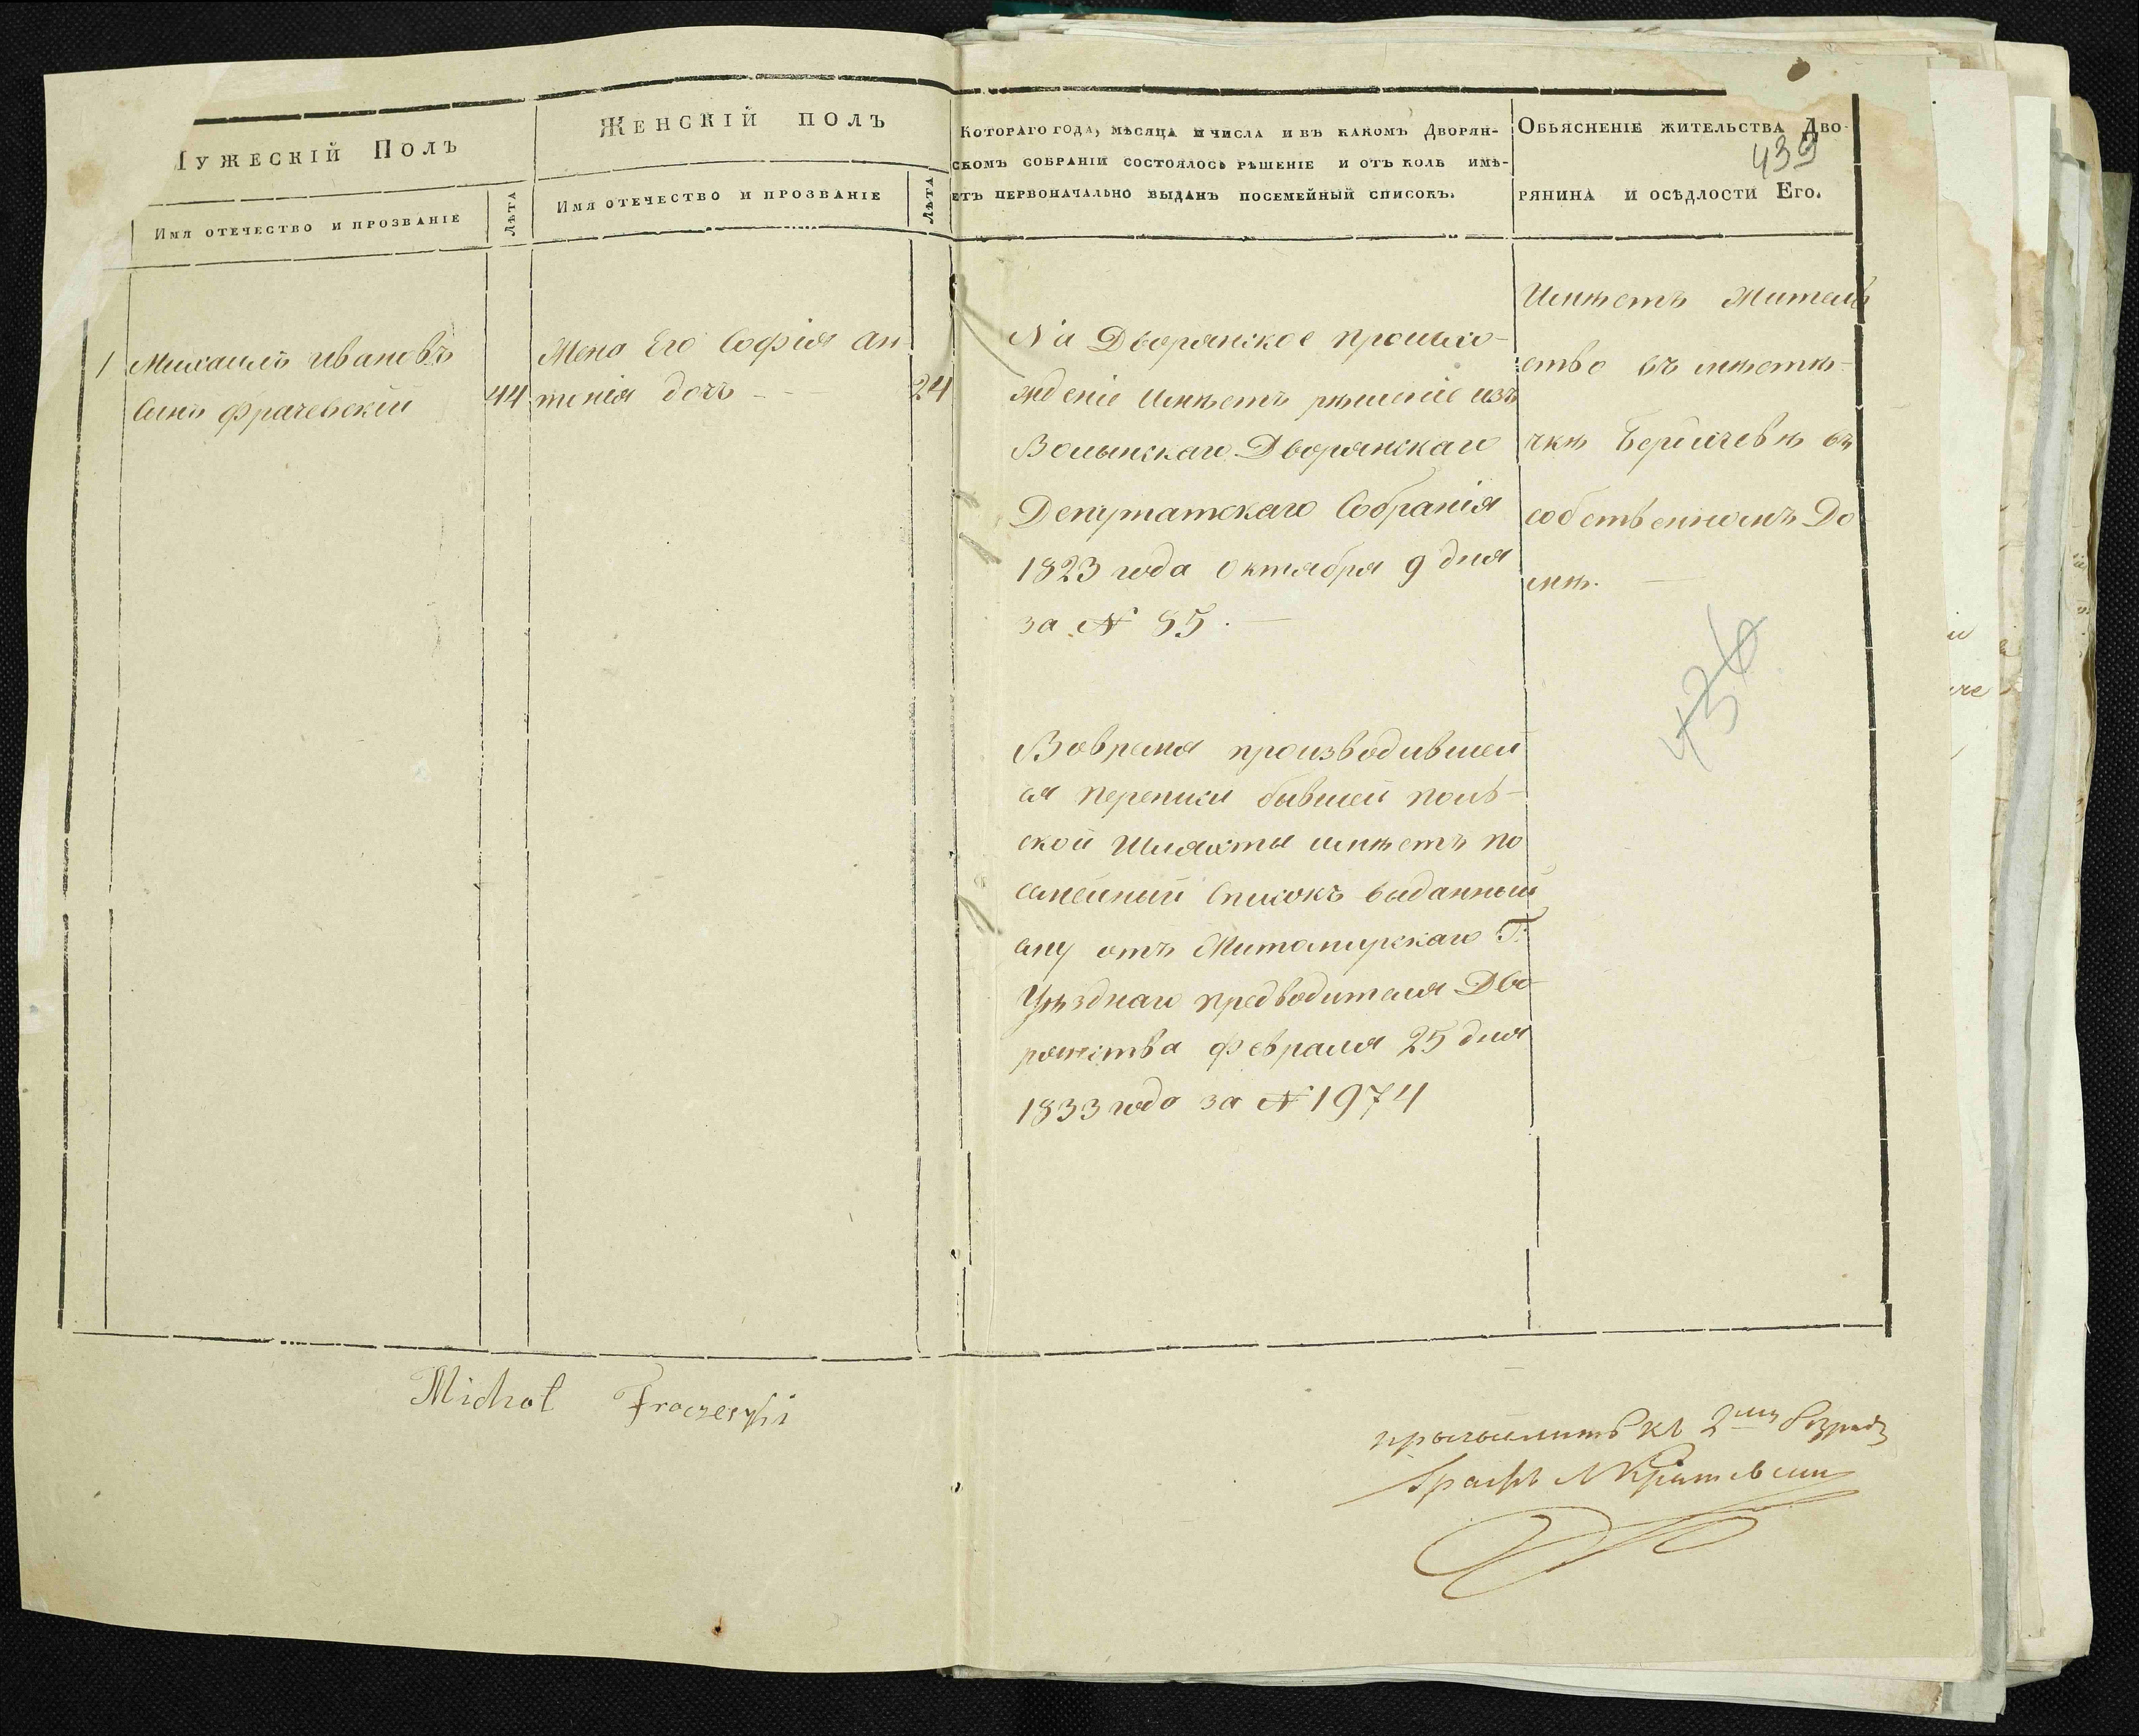 Мужескій Полъ
Имя отечество и прозваніе
Лѣта
Женскій полъ
Имя отечество и прозваніе
Лѣта
Котораго года, мѣсяца и числа и въ какомъ Дворян-
скомъ собраніи состоялось рѣшеніе и отъ коль имѣ-
етъ первоначально выданъ посемейный списокъ.
Обьясненіе жительства Дво-
рянина и осѣдлости Его.
439
1 Михаилъ Ивановъ
Сынъ Фрачевскій 44
Жена Его Софія Ан
тонія дочь - - 24
На Дворянское происхо-
жденіе имѣетъ рѣшеніе изъ
Волынскаго Дворянскаго
Депутатскаго Собранія
1823 года Октября 9 дня
за № 85. —
Вовремя производившей
ся переписи бывшей поль-
ской Шляхты имѣетъ по
семейный Списокъ выданный
ему отъ Житомирскаго Г:
Уѣзднаго предводителя Дво-
рянства Февраля 25 дня
1833 года за № 1974
Имѣетъ Житель
ство въ мѣсте-
чкѣ Бердичевѣ въ
собственномъ До
мѣ. —
436
Michał Fraczewski
причислить къ 2му Разряду
Графъ